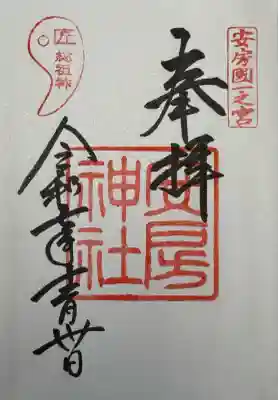 安房國一之宮
奉拝
安房神社
匠
総祖神
令和